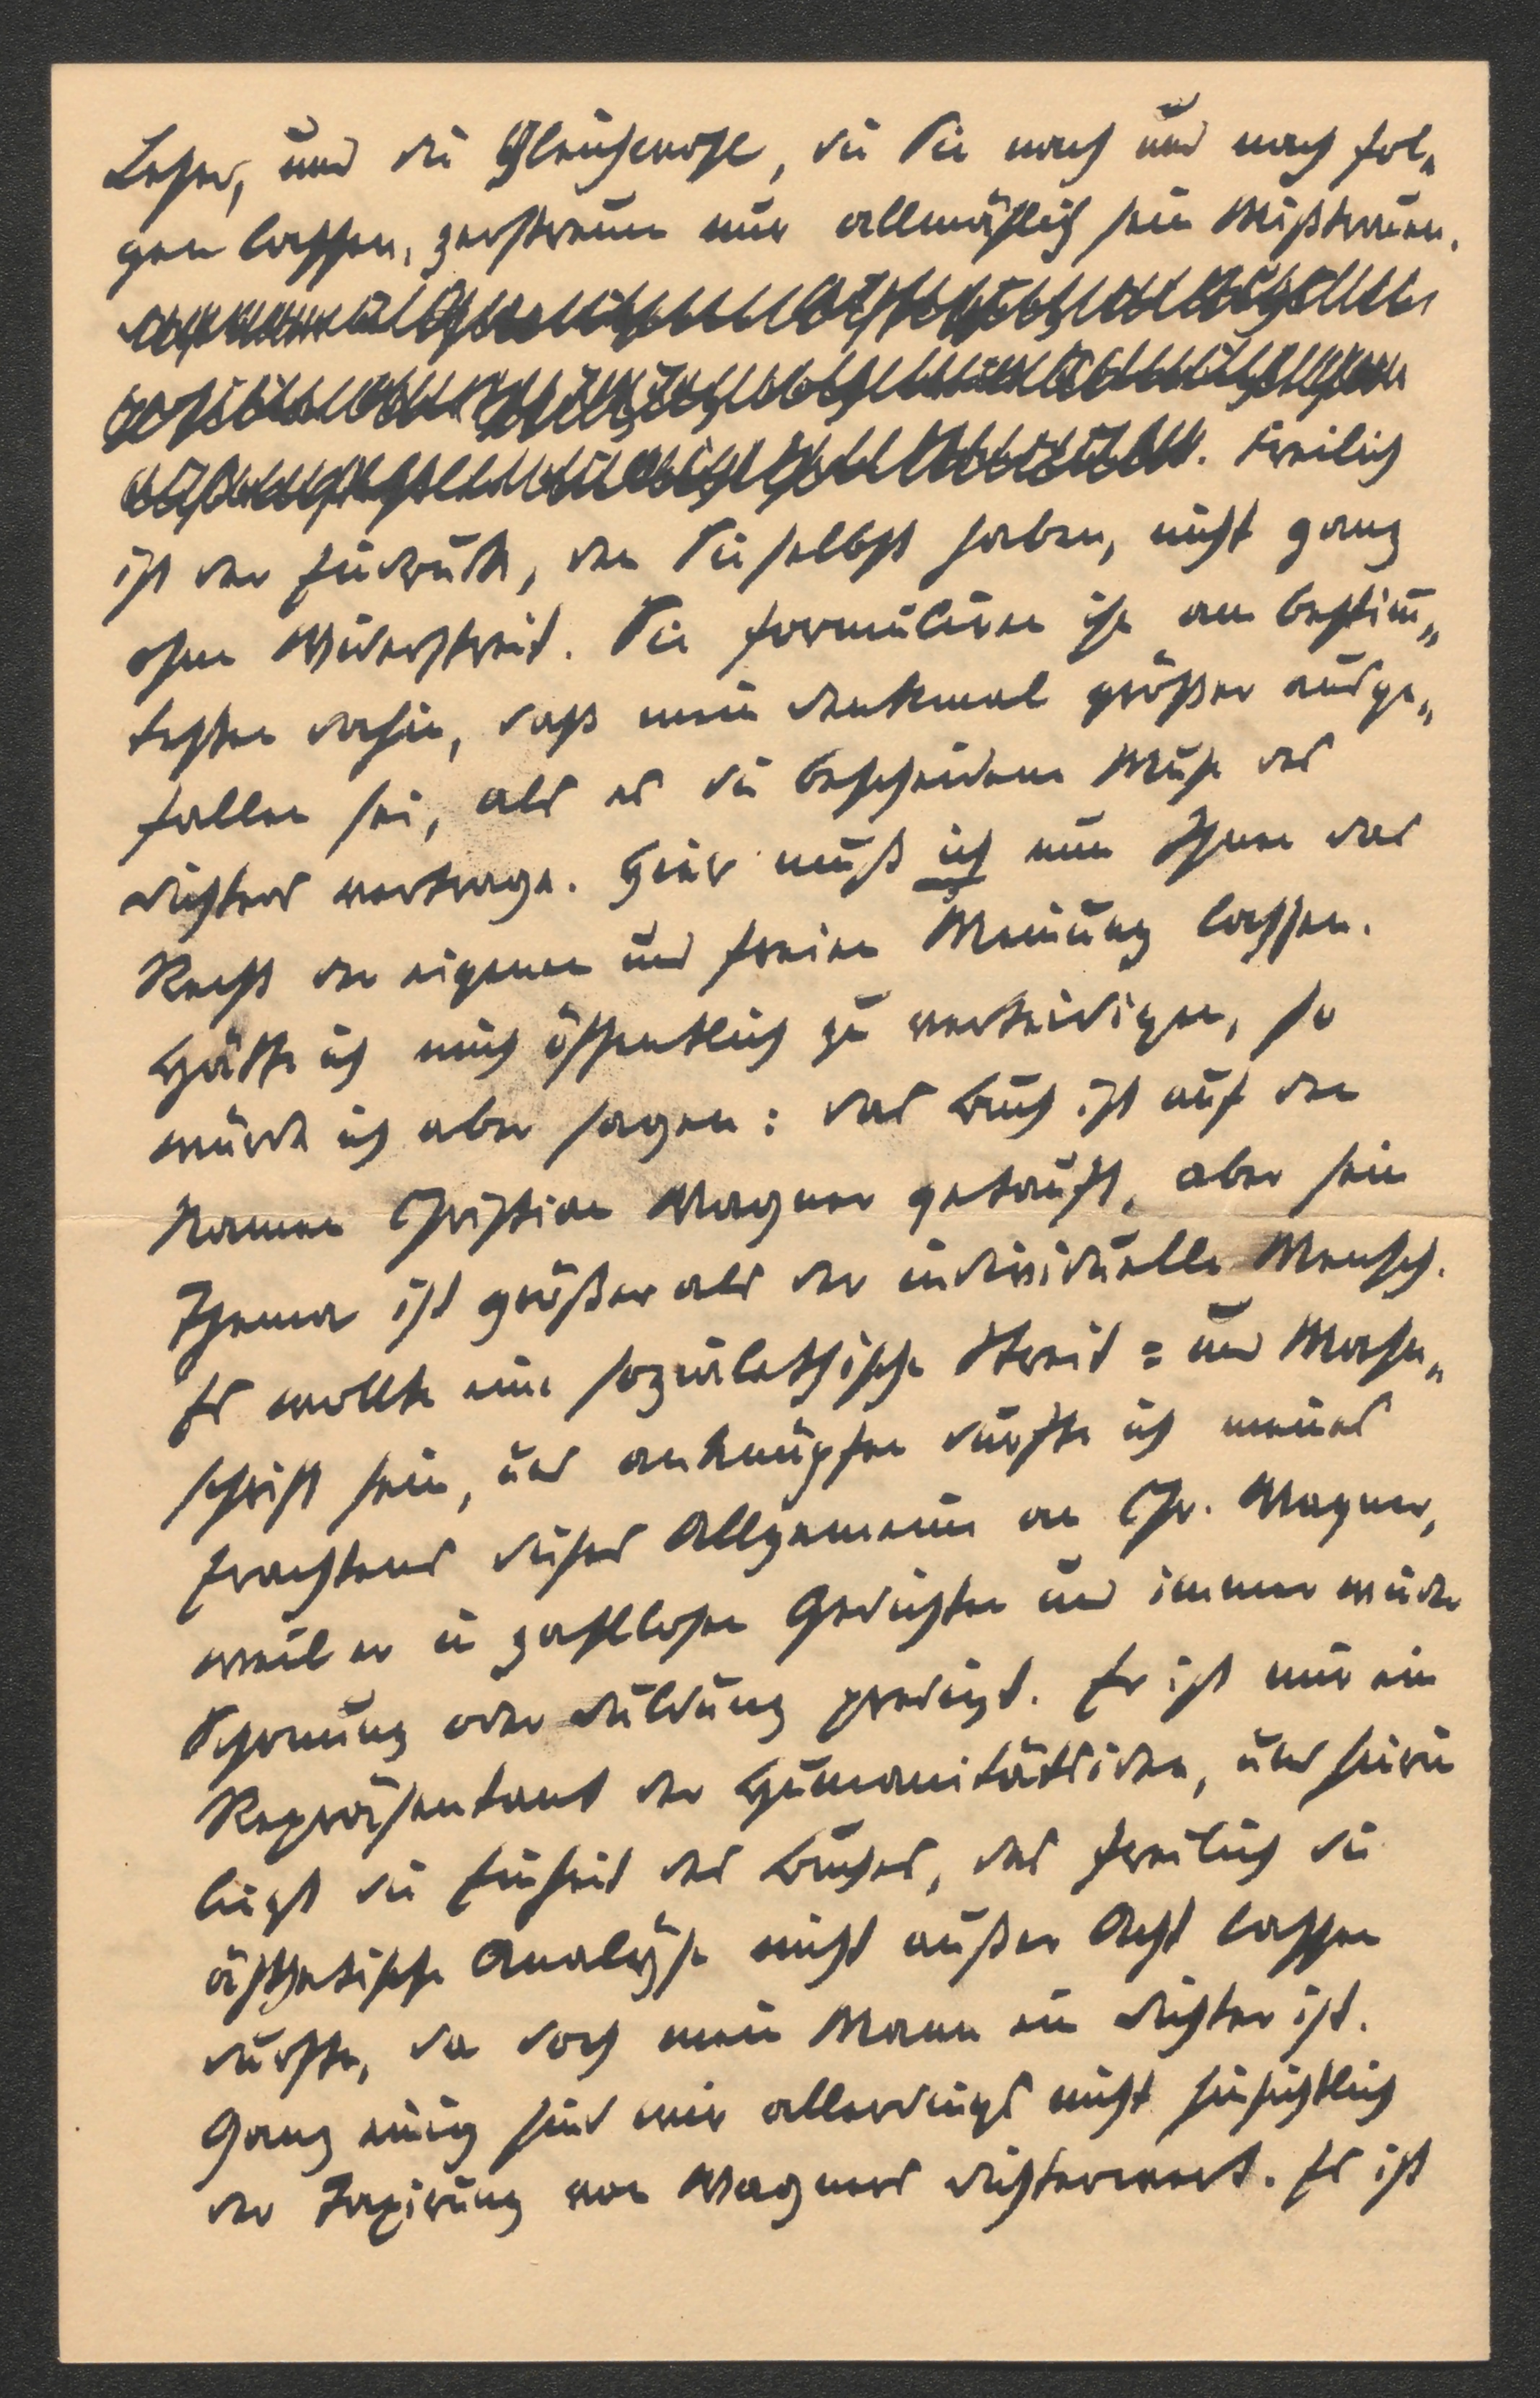 Leser, und die Gleichwohl, die Sie nach und nach fol-
gen lassen, zerstreuen nur allmählich sein Mißtrauen.
Freilich
ist der Eindruck, den Sie selbst haben, nicht ganz
ohne Widerstreit. Sie formulieren ihn am bestim-
testen dahin, daß mein Denkmal größer ausge-
fallen sei, als es die bescheidene Muse des
Dichters vertrage. Hier muß ich nun Ihnen das
Recht der eigenen und freien Meinung lassen.
Hätte ich mich öffentlich zu verteidigen, so
würde ich aber sagen: das Buch ist auf den
Namen Christian Wagner getauft, aber sein
Thema ist größer als der individuelle Mensch.
Es wollte eine sozialethische Streit= und Mahn-
schrift sein, und anknüpfen durfte ich meines
Erachtens dieses Allgemeine an Chr. Wagner,
weil er in zahllosen Gedichten und immer wieder
Schonung oder Duldung predigt. Er ist nur ein
Repräsentant der Humanitätsidee, und hierin
liegt die Einheit des Buches, das freilich die
ästhetische Analyse nicht außer Acht lassen
durfte, da doch mein Mann ein Dichter ist.
Ganz einig sind wir allerdings nicht hinsichtlich
der Taxirung von Wagners Dichterwert. Es ist